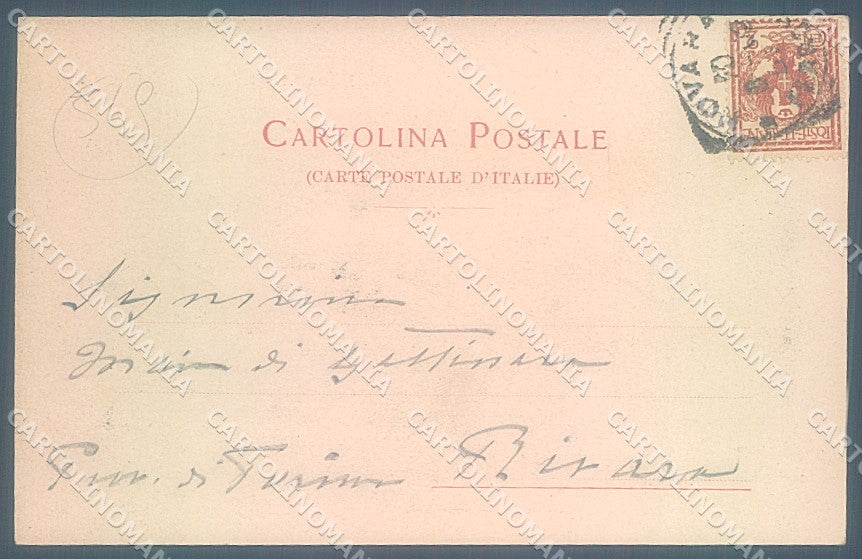 CARTOLINA POSTALE
(CARTE POSTALE D'ITALIE)
NOVARA
Signorina
di Gattinara
Prov. di Torino Rivara
CARTOLINOMANIA